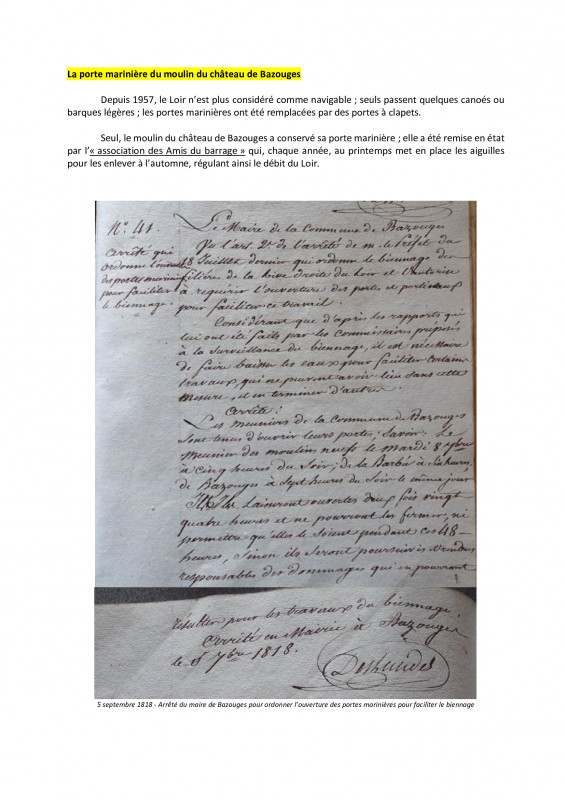 La porte marinière du moulin du château de Bazouges
Depuis 1957, le Loir n'est plus considéré comme navigable ; seuls passent quelques canoés ou
barques légères ; les portes marinières ont été remplacées par des portes à clapets.
Seul, le moulin du château de Bazouges a conservé sa porte marinière ; elle a été remise en état
par l'« association des Amis du barrage » qui, chaque année, au printemps met en place les aiguilles
pour les enlever à l'automne, régulant ainsi le débit du Loir.
N° 41.
arrêté qui
ordonne
des portes
pour faciliter
le biennage.
Le Maire de la Commune de Bazouges
Vu l'art. 2e de l'arrêté de m. le Préfet du
18 Juillet dernier qui ordonne le biennage des
filières de la Rive droite du Loir et l'autorise
à requérir l'ouverture des portes et
pour faciliter ce travail.
Considérant que d'après les rapports qui
lui ont été faits par les Commissaires préposés
à la Surveillance du biennage, il est nécessaire
de faire baisser les eaux pour faciliter certains
travaux, qui ne peuvent avoir lieu sans cette
mesure, et en terminer d'autres.
Arrête:
Les meuniers de la Commune de Bazouges
Sont tenus d'ouvrir leurs portes, Savoir: Le
Meunier des moulins neufs le mardi 8 7bre
à Cinq heures du Soir; de la Barbée à Six heures,
de Bazouges à Sept heures du Soir le même jour
Ils les laisseront ouvertes deux fois vingt
quatre heures et ne pourront les fermer, ni
permettre qu'elles le Soient pendant ces 48
heures, Sinon ils Seront poursuivis et rendus
responsables des dommages qui en pourront
résulter pour les travaux du biennage.
Arrêté en Mairie à Bazouges
le 5 7bre 1818.
5 septembre 1818 - Arrêté du maire de Bazouges pour ordonner l'ouverture des portes marinières pour faciliter le biennage